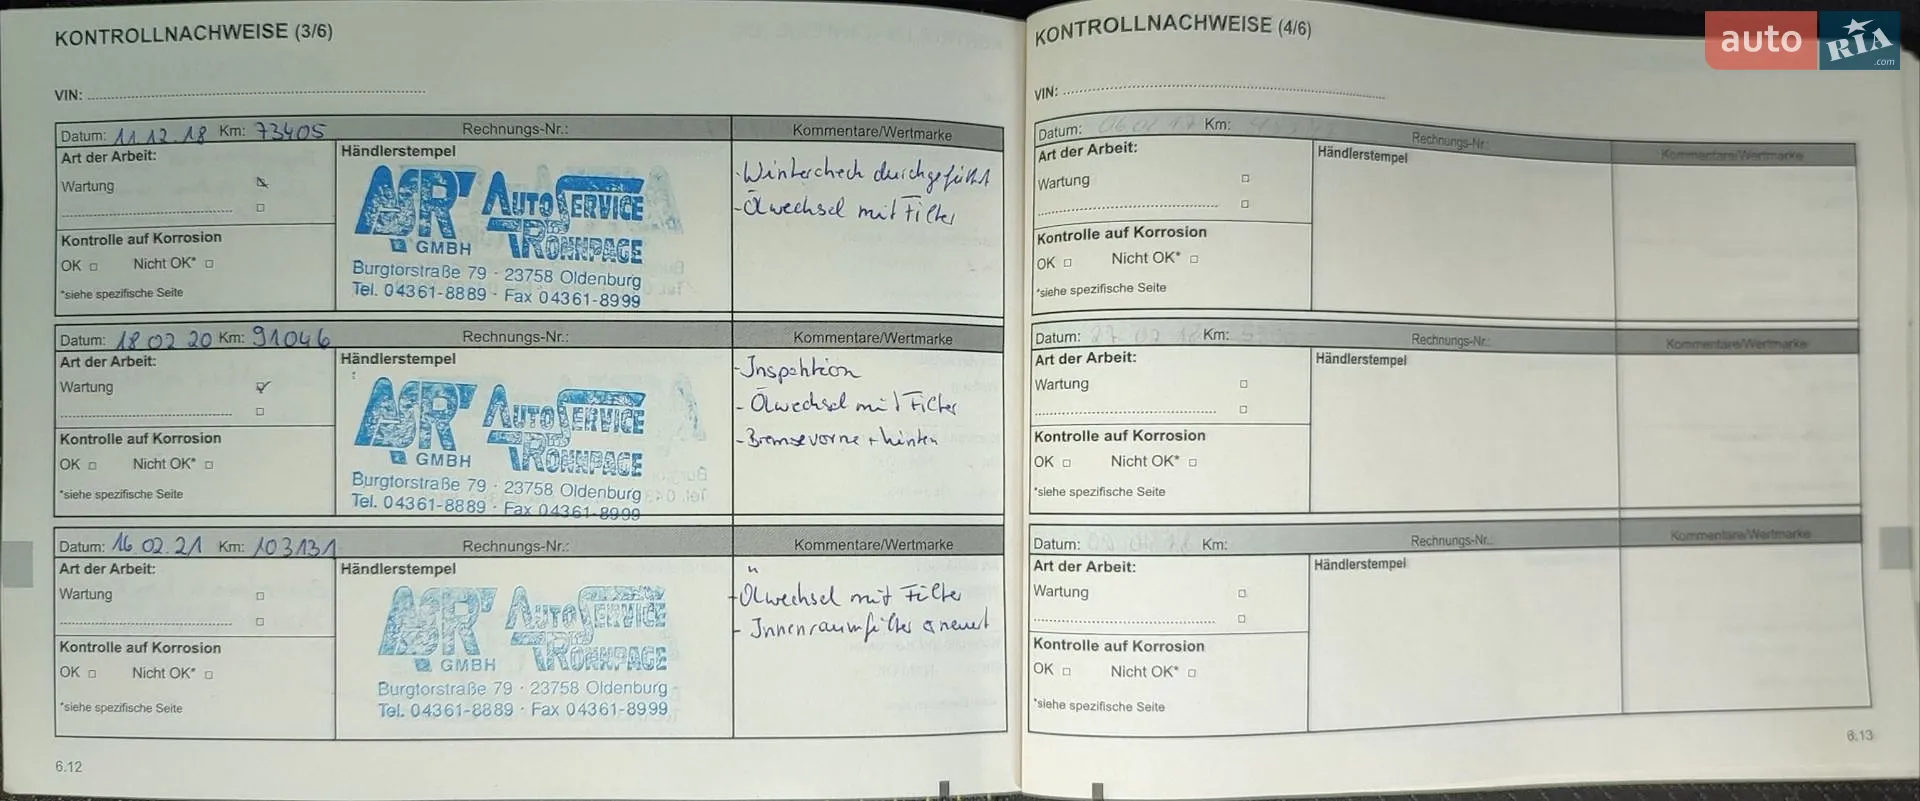 KONTROLLNACHWEISE (3/6)
VIN:
Datum: 11.12.18 Km: 73405 Rechnungs-Nr.: Kommentare/Wertmarke
Art der Arbeit: Händlerstempel
Wartung
Kontrolle auf Korrosion
OK Nicht OK*
*siehe spezifische Seite
AUTOSERVICE
RÖNNPAGE
GMBH
Burgtorstraße 79 · 23758 Oldenburg
Tel. 04361-8889 · Fax 04361-8999
- Wintercheck durchgeführt
- Ölwechsel mit Filter
Datum: 18 02 20 Km: 91046 Rechnungs-Nr.: Kommentare/Wertmarke
Art der Arbeit: Händlerstempel
Wartung
Kontrolle auf Korrosion
OK Nicht OK*
*siehe spezifische Seite
AUTOSERVICE
RÖNNPAGE
GMBH
Burgtorstraße 79 · 23758 Oldenburg
Tel. 04361-8889 · Fax 04361-8999
- Inspektion
- Ölwechsel mit Filter
- Bremse vorne + hinten
Datum: 16 02.21 Km: 103131 Rechnungs-Nr.: Kommentare/Wertmarke
Art der Arbeit: Händlerstempel
Wartung
Kontrolle auf Korrosion
OK Nicht OK*
*siehe spezifische Seite
AUTOSERVICE
RÖNNPAGE
GMBH
Burgtorstraße 79 · 23758 Oldenburg
Tel. 04361-8889 · Fax 04361-8999
- Ölwechsel mit Filter
- Innenraumfilter erneuert
6.12
KONTROLLNACHWEISE (4/6)
VIN:
Datum: Km: Rechnungs-Nr.: Kommentare/Wertmarke
Art der Arbeit: Händlerstempel
Wartung
Kontrolle auf Korrosion
OK Nicht OK*
*siehe spezifische Seite
Datum: Km: Rechnungs-Nr.: Kommentare/Wertmarke
Art der Arbeit: Händlerstempel
Wartung
Kontrolle auf Korrosion
OK Nicht OK*
*siehe spezifische Seite
Datum: Km: Rechnungs-Nr.: Kommentare/Wertmarke
Art der Arbeit: Händlerstempel
Wartung
Kontrolle auf Korrosion
OK Nicht OK*
*siehe spezifische Seite
6.13
auto RIA .com